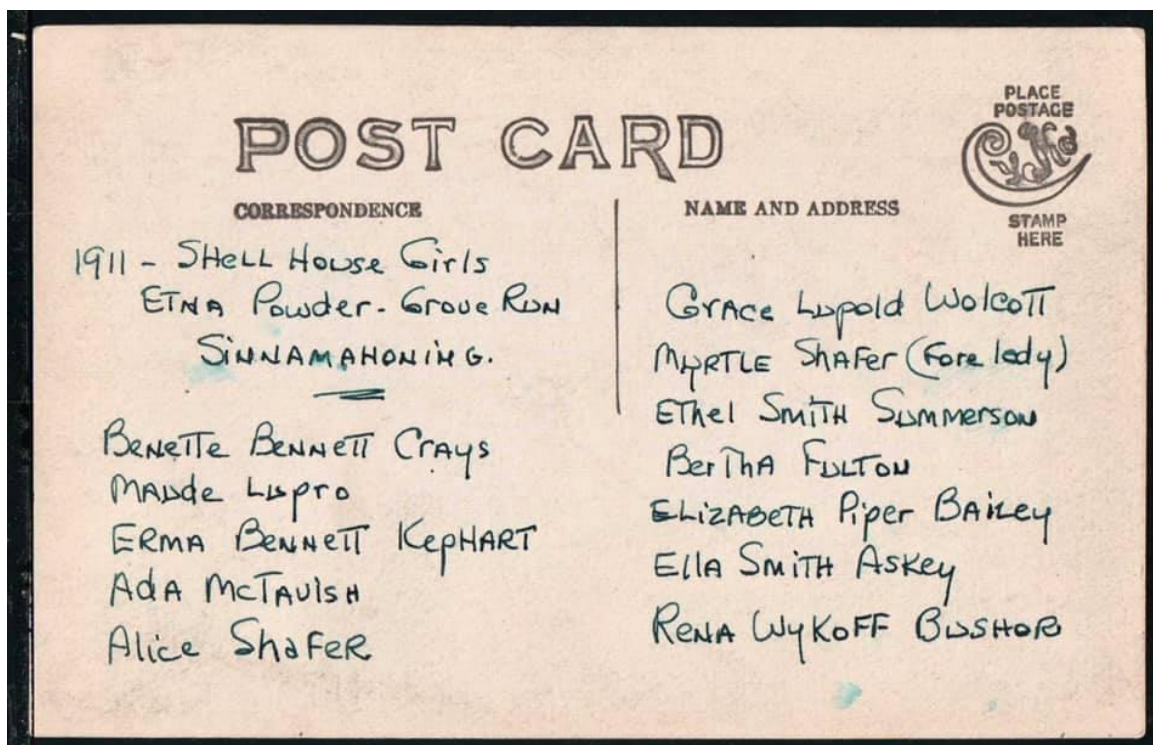 POST CARD
PLACE
POSTAGE
CYKO
STAMP
HERE
CORRESPONDENCE
NAME AND ADDRESS
1911 - SHELL HOUSE GIRLS
ETNA POWDER - GROVE RUN
SINNAMAHONING.
BENETTE BENNETT CRAYS
MAUDE LUPRO
ERMA BENNETT KEPHART
ADA McTAVISH
ALICE SHAFER
GRACE LUPOLD WOLCOTT
MYRTLE SHAFER (Forelady)
ETHEL SMITH SUMMERSON
BERTHA FULTON
ELIZABETH PIPER BAILEY
ELLA SMITH ASKEY
RENA WYKOFF BUSHOR